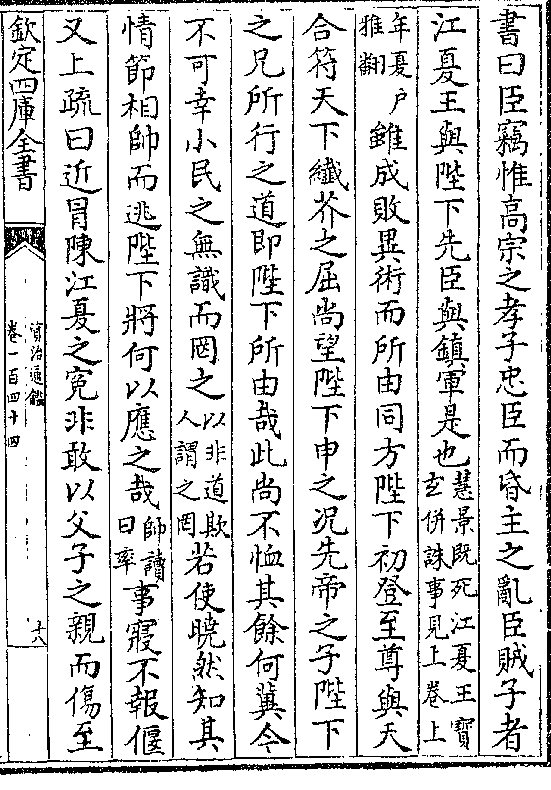 書曰臣竊惟高宗之孝子忠臣而昏主之亂臣賊子者
江夏王與陛下先臣與鎮軍是也慧景既死江夏王寶玄併誅事見上卷上
年夏戶雅翻雖成敗異術而所由同方陛下初登至尊與天
合符天下纎芥之屈尚望陛下申之況先帝之子陛下
之兄所行之道即陛下所由哉此尚不恤其餘何冀今
不可幸小民之無識而罔之以非道欺人謂之罔若使曉然知其
情節相帥而逃陛下將何以應之哉帥讀曰率事寢不報偃
又上疏曰近冒陳江夏之寃非敢以父子之親而傷至
欽定四庫全書
資治通鑑
卷一百四十四
十八